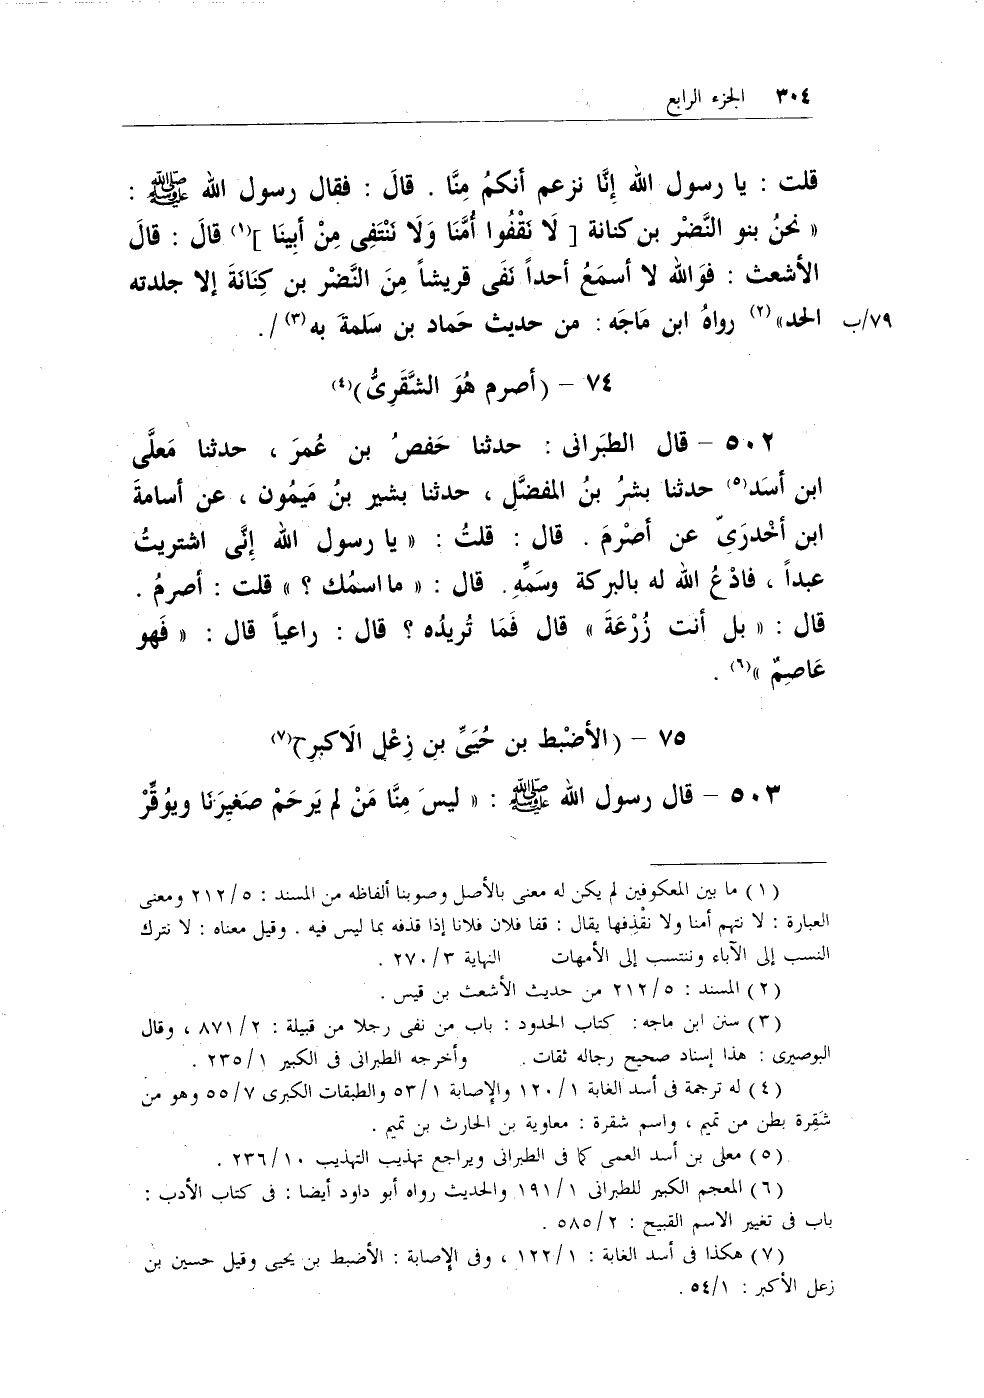 ٣٠٤ الجزء الرابع
قلت : يا رسول الله إنَّا نزعم أنكمُ مِنَّا . قالَ : فقال رسول الله ﷺ :
« نحنُ بنو النَّضْر بن كنانة [ لَا نَقْفُوا أُمَّنَا وَلَا نَنْتَفِى مِنْ أبينَا ](١) قالَ : قالَ
الأشعث : فوَالله لا أسمَعُ أحداً نَفَى قريشاً مِنَ النَّضْر بن كِنَانَةَ إلا جلدته
الحد»(٢) رواهُ ابن مَاجَه : من حديث حَماد بن سَلمةَ به(٣) / . ٧٩/ب
٧٤ – (أصرم هُوَ الشَّقَرِىُّ)(٤)
٥٠٢ – قال الطبَرانى : حدثنا حَفصُ بن عُمرَ ، حدثنا مَعلَّى
ابن أسَد(٥) حدثنا بشرُ بنُ المفضَّلِ ، حدثنا بشير بنُ مَيمُون ، عن أسامةَ
ابن أخْدرَىّ عن أصْرمَ . قال : قلتُ : « يا رسول الله إنَّى اشتريتُ
عبداً ، فادْعُ الله له بالبركة وسَمِّهِ . قال : « ما اسمُك ؟ » قلت : أصرمُ .
قال : « بل أنت زُرْعَةَ » قال فَمَا تُريدُه ؟ قال : راعياً قال : « فَهو
عَاصِمٌ »(٦) .
٧٥ – (الأضْبط بن حُيَىِّ بنِ زِعْلِ الَاكبرِح(٧)
٥٠٣ – قال رسول الله ﷺ : « ليسَ مِنَّا مَنْ لم يَرحَمْ صَغيرَنَا ويوُقِّرْ
(١) ما بين المعكوفين لم يكن له معنى بالأصل وصوبنا ألفاظه من المسند : ٢١٢/٥ ومعنى
العبارة : لا نتهم أمنا ولا نقْذِفها يقال : قفا فلان فلانا إذا قذفه بما ليس فيه . وقيل معناه : لا نترك
النسب إلى الآباء وننتسب إلى الأمهات النهاية ٢٧٠/٣ .
(٢) المسند : ٢١٢/٥ من حديث الأشعث بن قيس .
(٣) سنن ابن ماجه : كتاب الحدود : باب من نفى رجلا من قبيلة : ٨٧١/٢ ، وقال
البوصيرى : هذا إسناد صحيح رجاله ثقات . وأخرجه الطبرانى فى الكبير ٢٣٥/١ .
(٤) له ترجمة فى أسد الغابة ١٢٠/١ والإصابة ٥٣/١ والطبقات الكبرى ٥٥/٧ وهو من
شَقِرة بطن من تميم ، واسم شقرة : معاوية بن الحارث بن تميم .
(٥) معلى بن أسد العمى كما فى الطبرانى ويراجع تهذيب التهذيب ٢٣٦/١٠ .
(٦) المعجم الكبير للطبرانى ١٩١/١ والحديث رواه أبو داود أيضا : فى كتاب الأدب :
باب فى تغيير الاسم القبيح : ٥٨٥/٢ .
(٧) هكذا فى أسد الغابة : ١٢٢/١ ، وفى الإصابة : الأضبط بن يحيى وقيل حسين بن
زعل الأكبر : ٥٤/١ .